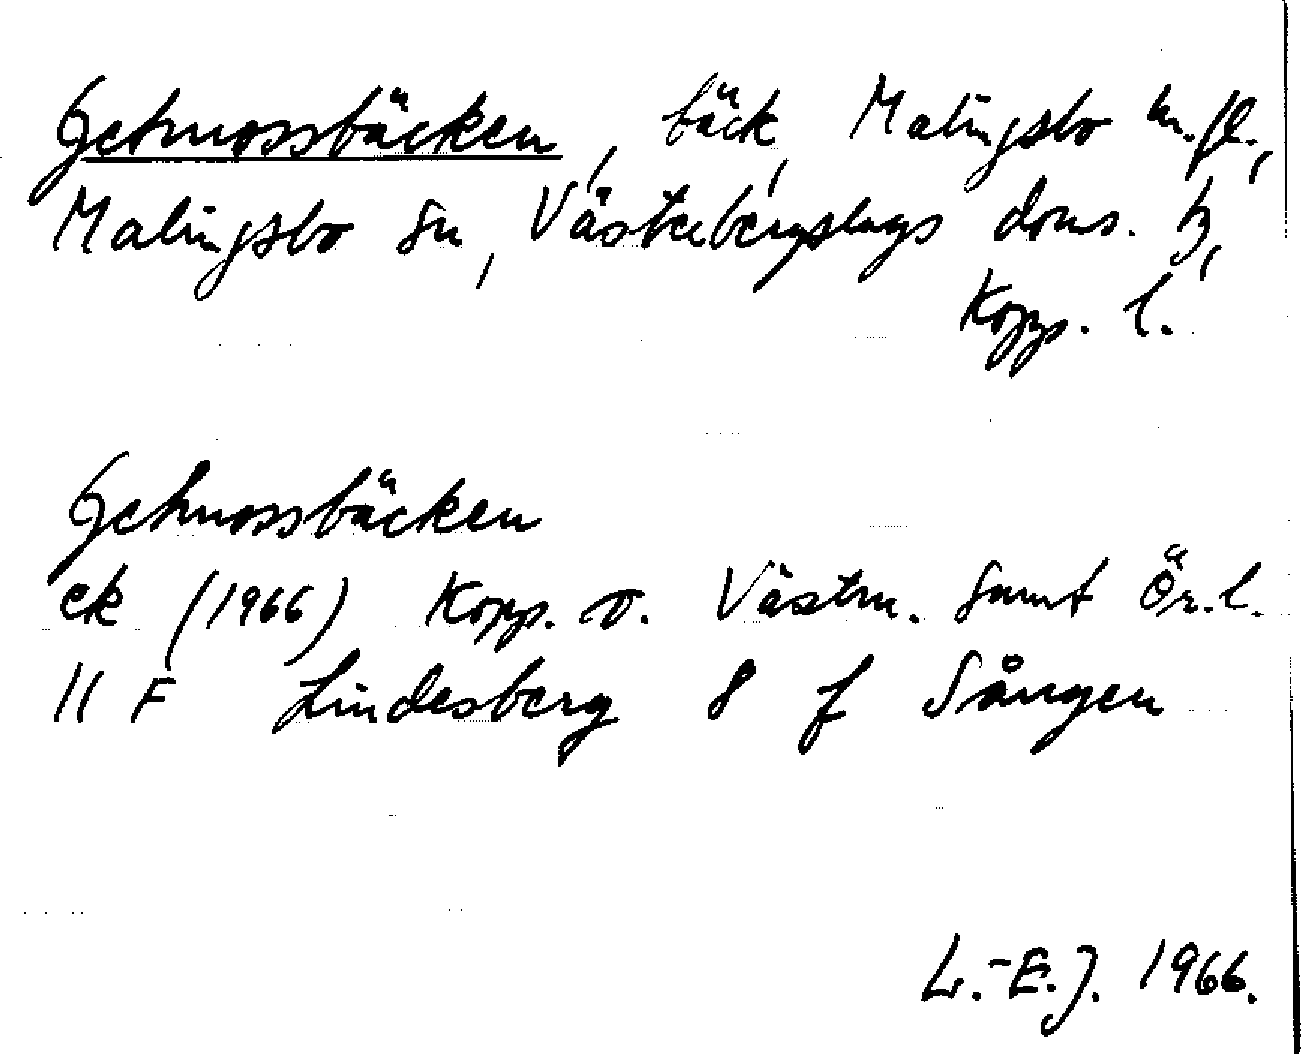 Gehnossbäcken, bäck, Malingsbo kr.fl.,
Malingsbo sn, Västerbergslags doms. tz,
Kopp. l.
Gehnossbäcken
ek (1966) Kopp. o. Västm. samt Ör. l.
11 F Lindesberg 8 f Sången
L.-E.J. 1966.